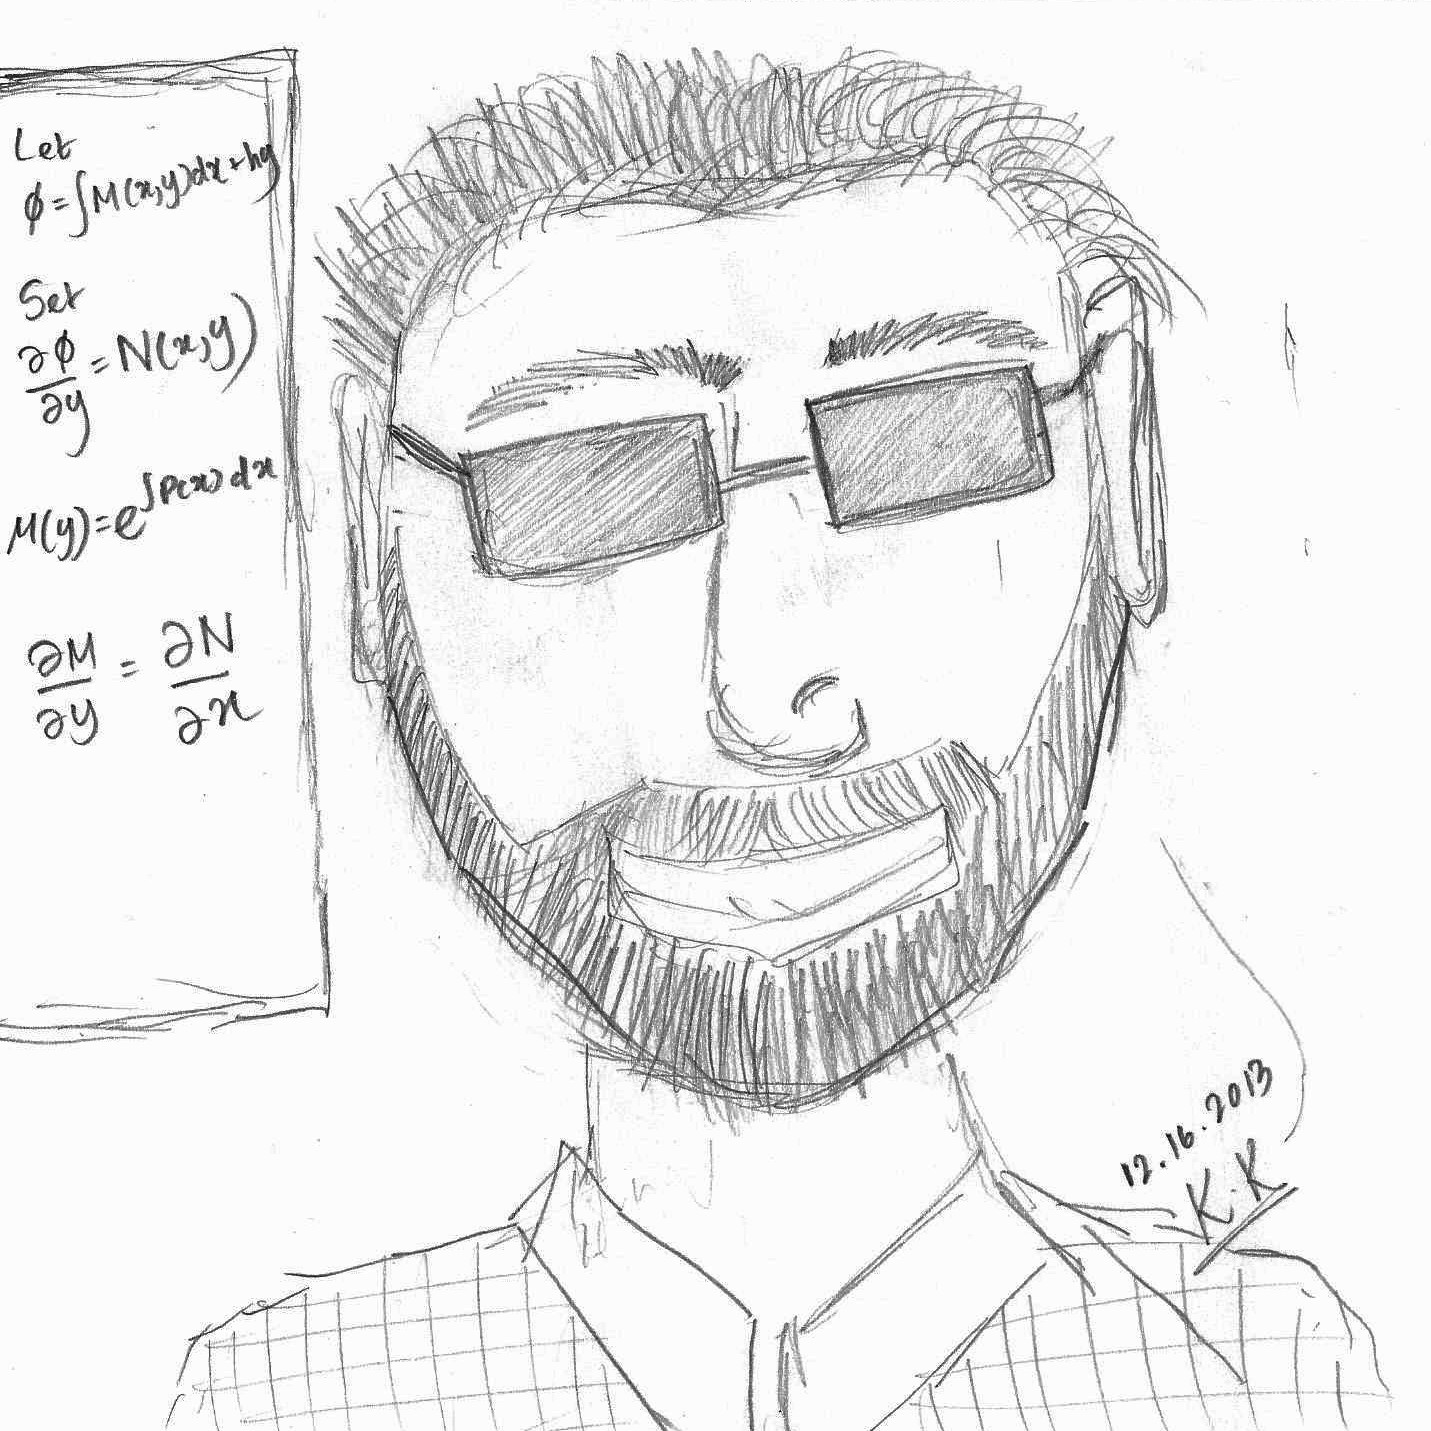 Let
ϕ=∫M(x,y)dx+hy
Set
∂ϕ/∂y=N(x,y)
M(y)=e^∫P(x)dx
∂M/∂y=∂N/∂x
12.16.2013
K.K